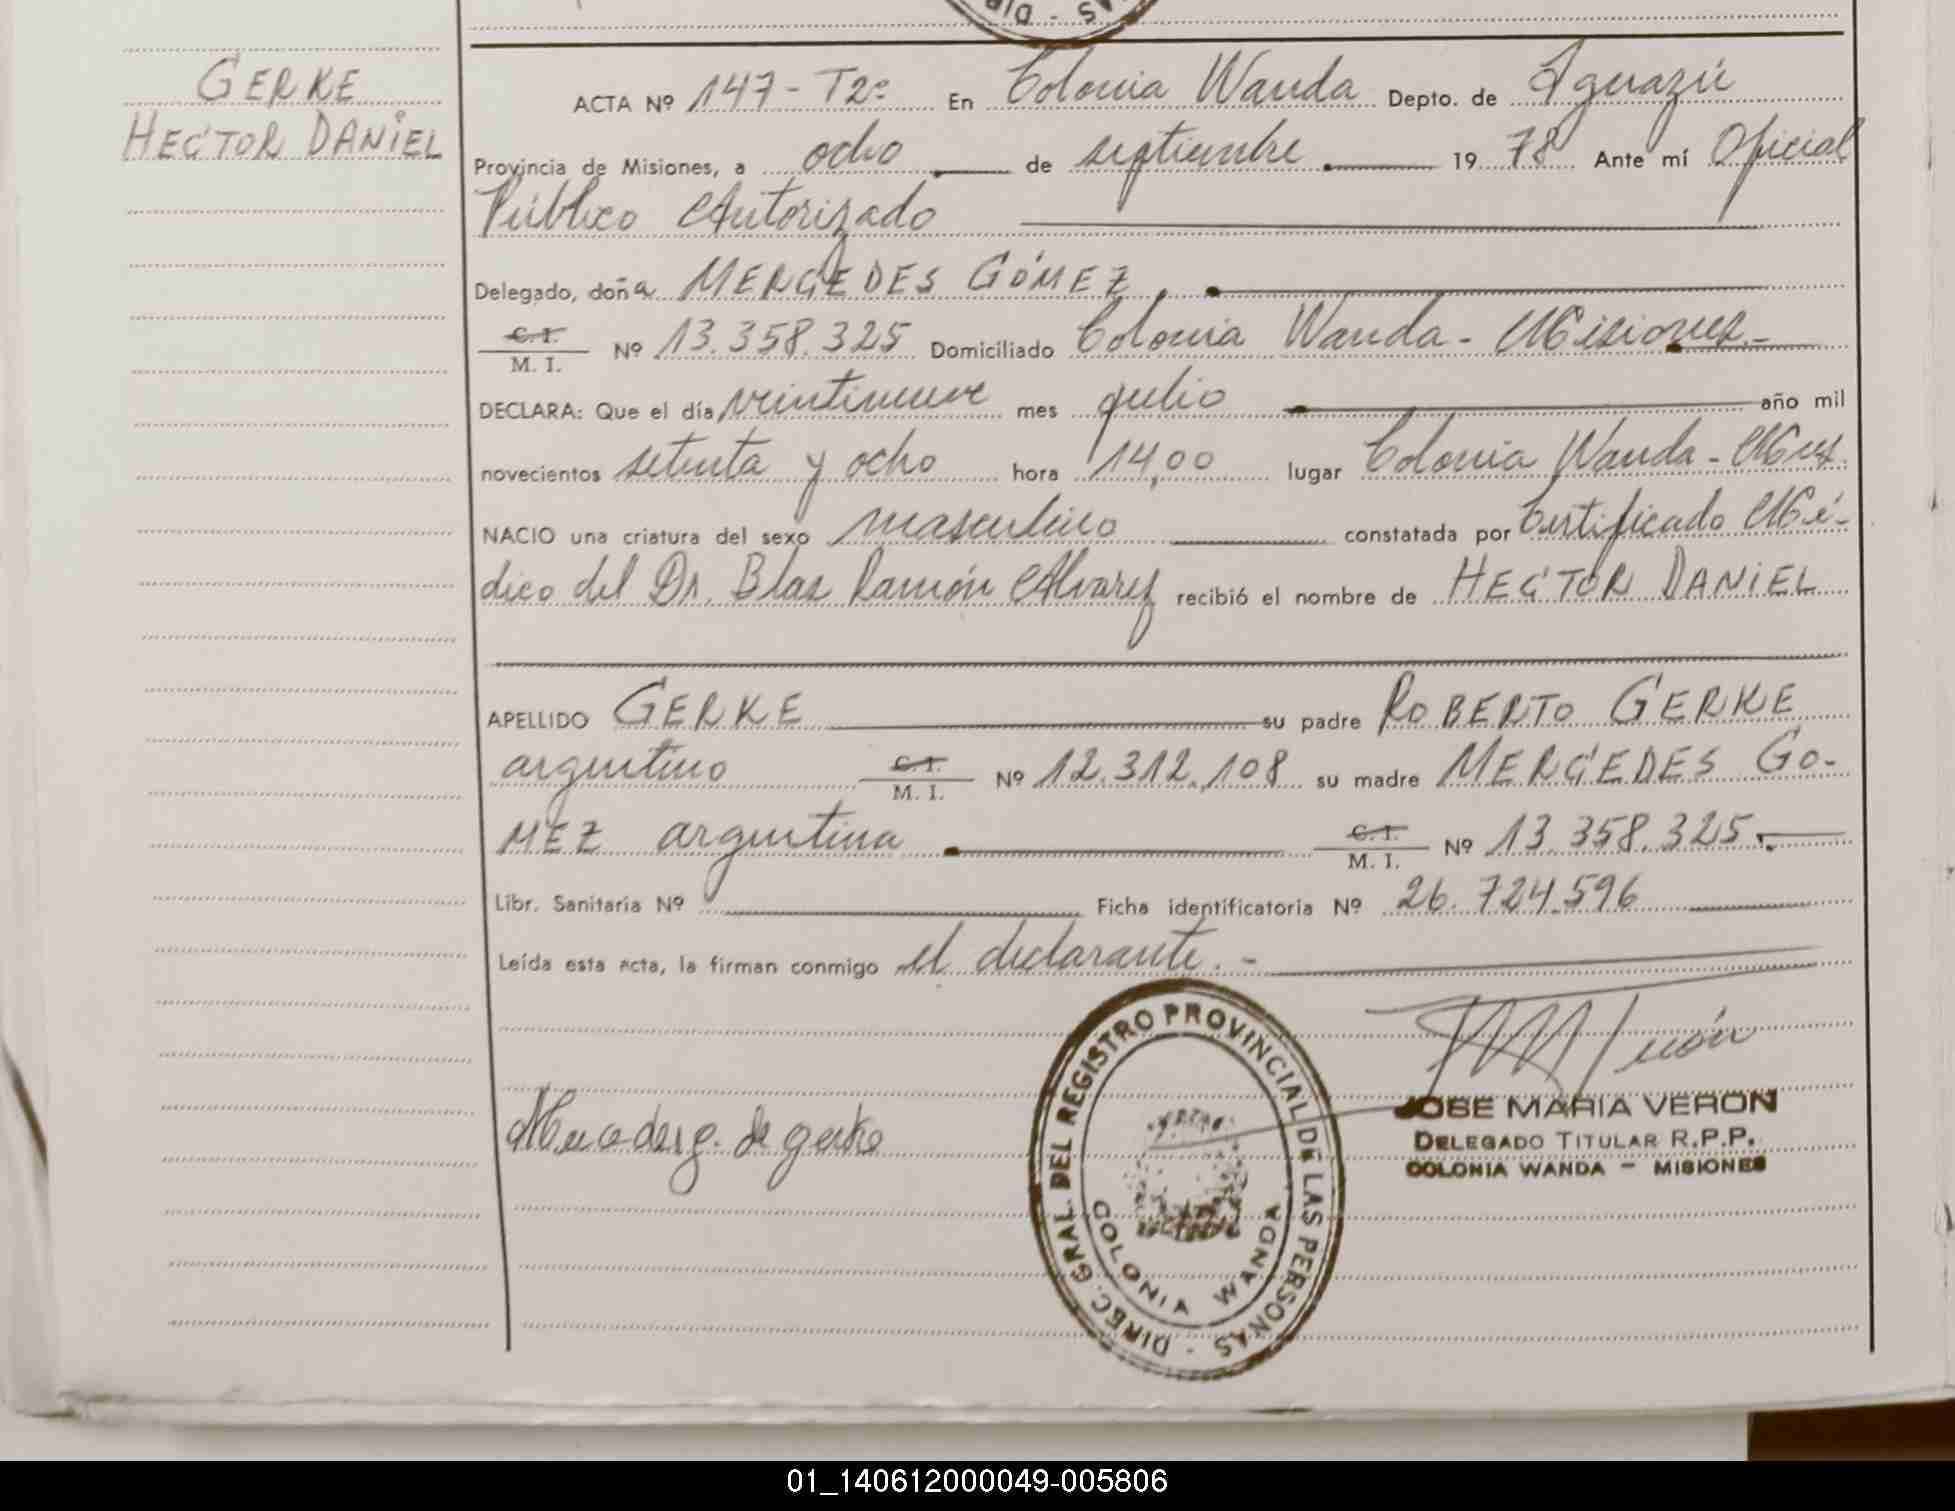 GERKE
HECTOR DANIEL
ACTA Nº 147 - T2º En Colonia Wanda Depto. de Iguazú
Provincia de Misiones, a ocho de septiembre 19 78 Ante mí Oficial
Público Autorizado
Delegado, doña MERCEDES GÓMEZ,
C.I. / M. I. Nº 13.358.325 Domiciliado Colonia Wanda - Misiones.-
DECLARA: Que el día veintinueve mes julio año mil
novecientos setenta y ocho hora 14,00 lugar Colonia Wanda - Mnes.
NACIO una criatura del sexo masculino constatada por Certificado Mé-
dico del Dr. Blas Ramón Alvarez recibió el nombre de HECTOR DANIEL
APELLIDO GERKE su padre ROBERTO GERKE
argentino C.I. / M. I. Nº 12.312.108 su madre MERCEDES GO-
MEZ argentina C.I. / M. I. Nº 13.358.325.-
Libr. Sanitaria Nº Ficha identificatoria Nº 26.724.596
Leída esta acta, la firman conmigo el declarante. -
DIREC. GRAL. DEL REGISTRO PROVINCIAL DE LAS PERSONAS -
COLONIA WANDA
JOSE MARIA VERON
DELEGADO TITULAR R.P.P.
COLONIA WANDA - MISIONES
de gerke
01_140612000049-005806